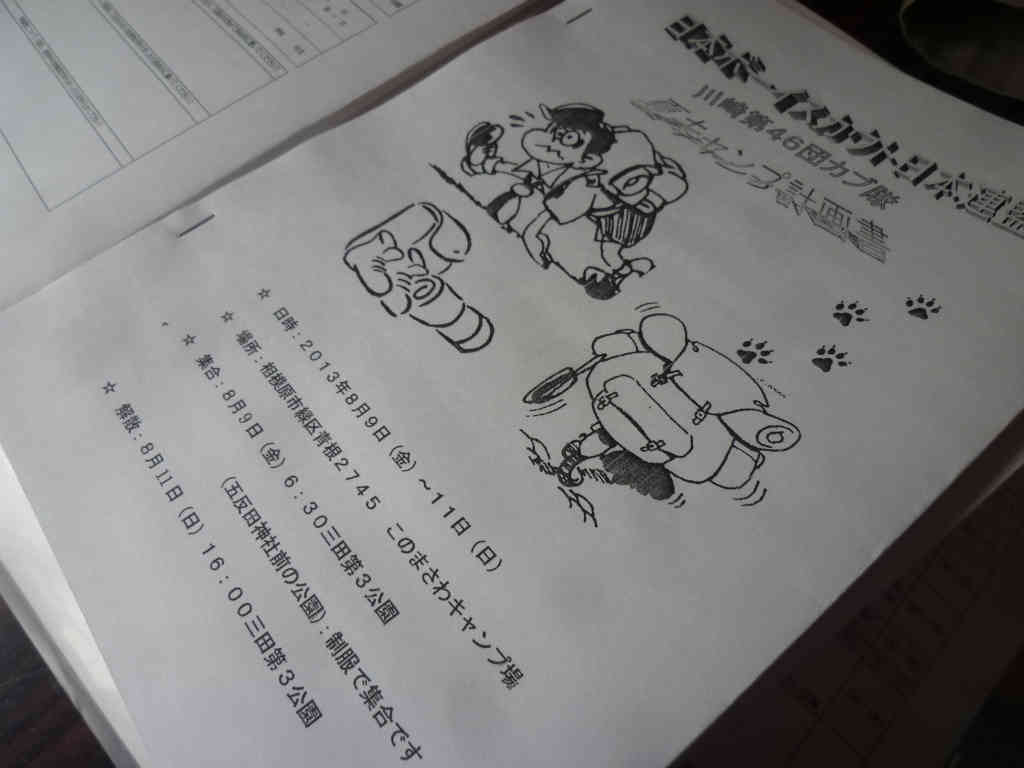 ボーイスカウト日本連盟
川崎第46団カブ隊
キャンプ計画書
☆ 日時:2013年8月9日(金)~11日(日)
☆ 場所:相模原市緑区青根2745 このまさわキャンプ場
☆ 集合:8月9日(金)6:30三田第3公園
(五反田神社前の公園):制服で集合です
☆ 解散:8月11日(日)16:00三田第3公園